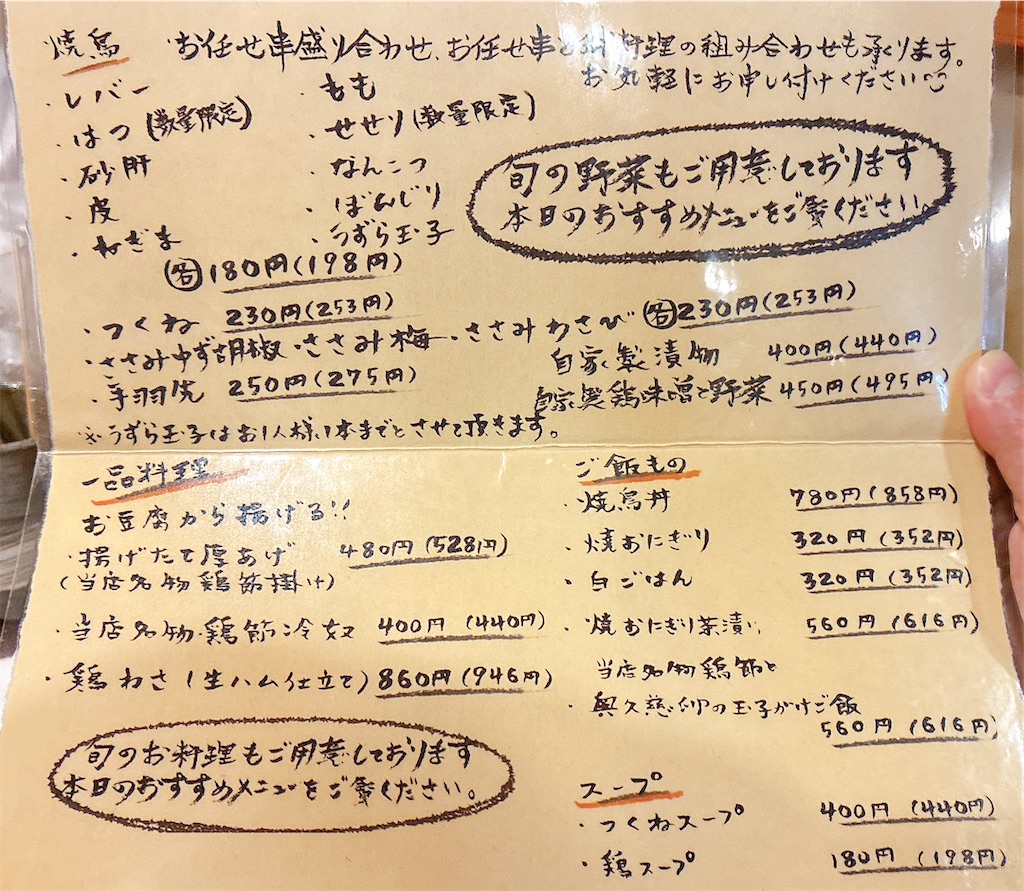 焼鳥 お任せ串盛り合わせ、お任せ串と鶏料理の組み合わせも承ります。
お気軽にお申し付けください
・レバー
・はつ(数量限定)
・砂肝
・皮
・ねぎま
・もも
・せせり(数量限定)
・なんこつ
・ぼんじり
・うずら玉子
各180円(198円)
旬の野菜もご用意しております
本日のおすすめメニューをご覧ください。
・つくね 230円(253円)
・ささみゆず胡椒・ささみ梅・ささみわさび 各230円(253円)
・手羽先 250円(275円)
自家製漬物 400円(440円)
自家製鶏味噌と野菜 450円(495円)
※うずら玉子はお1人様1本までとさせて頂きます。
一品料理
お豆腐から揚げる!!
・揚げたて厚あげ 480円(528円)
(当店名物鶏節掛け)
・当店名物・鶏節冷奴 400円(440円)
・鶏わさ(生ハム仕立て) 860円(946円)
旬のお料理もご用意しております
本日のおすすめメニューをご覧ください。
ご飯もの
・焼鳥丼 780円(858円)
・焼おにぎり 320円(352円)
・白ごはん 320円(352円)
・焼おにぎり茶漬け 560円(616円)
当店名物鶏節と
・奥久慈卵の玉子がけご飯
560円(616円)
スープ
・つくねスープ 400円(440円)
・鶏スープ 180円(198円)